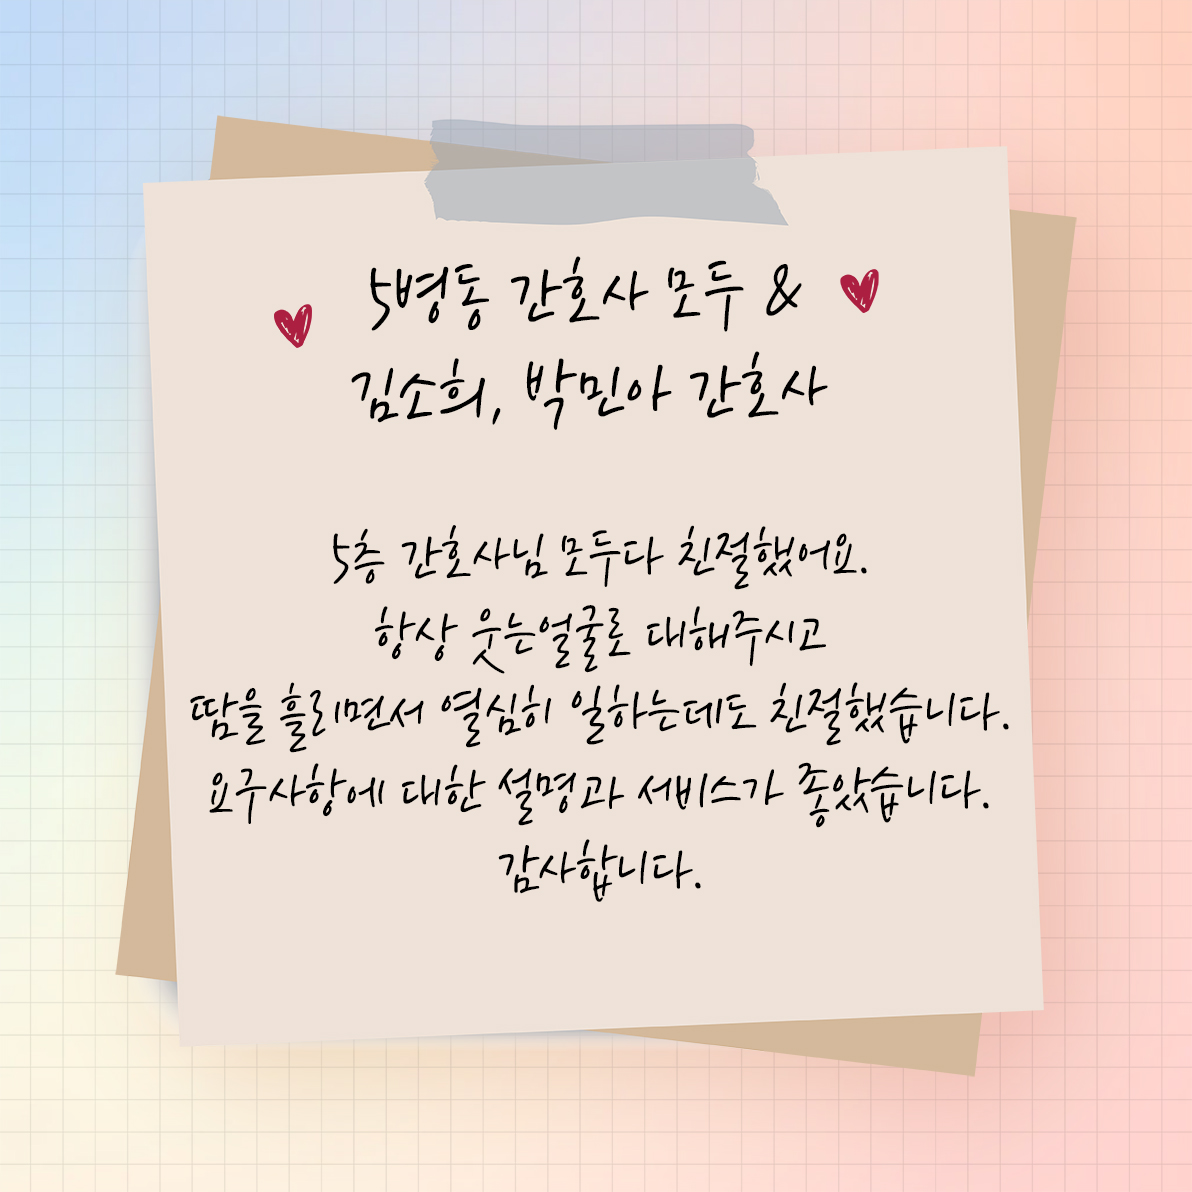 5병동 간호사 모두 &
김소희, 박민아 간호사
5층 간호사님 모두다 친절했어요.
항상 웃는얼굴로 대해주시고
땀을 흘리면서 열심히 일하는데도 친절했습니다.
요구사항에 대한 설명과 서비스가 좋았습니다.
감사합니다.